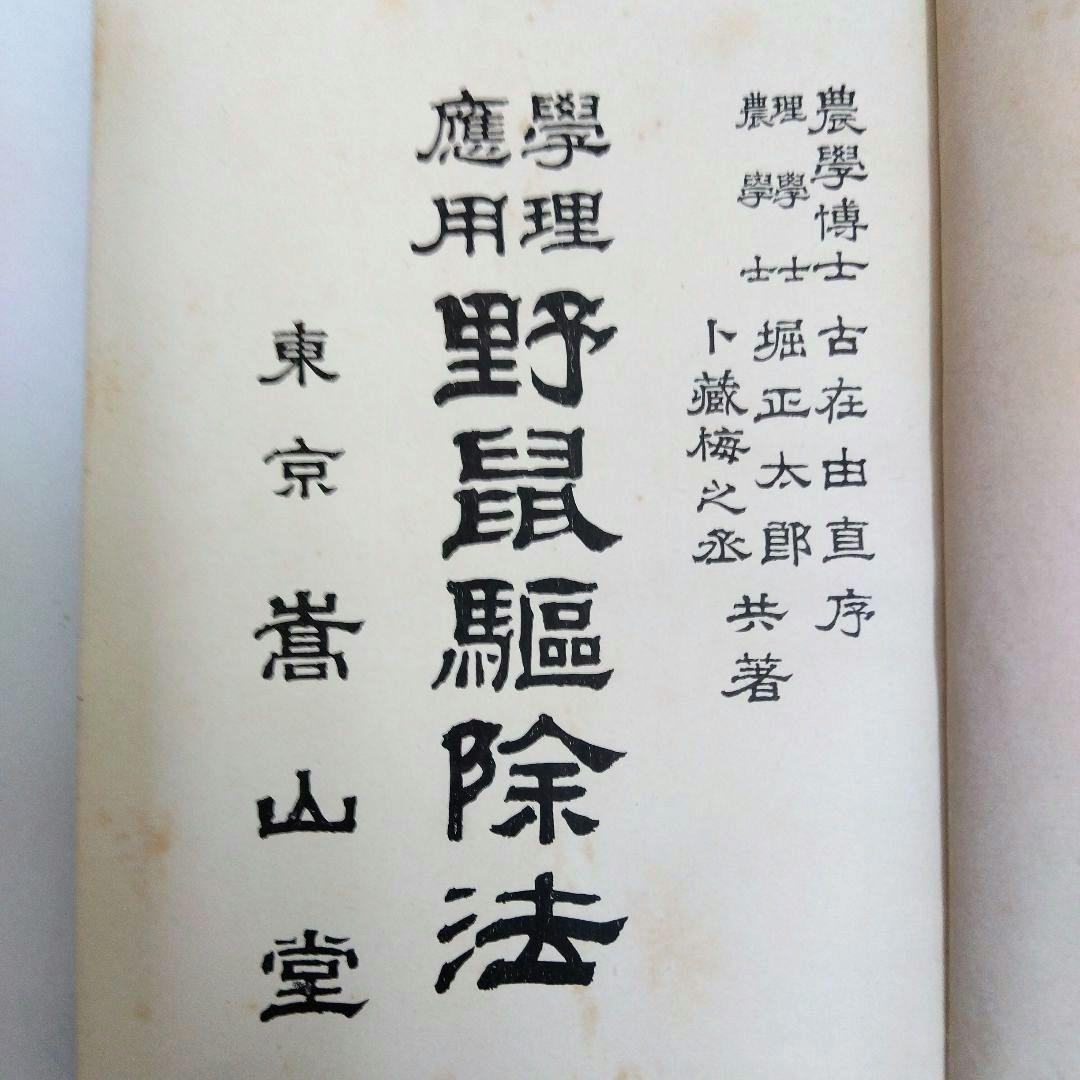 農學博士 古在由直序
理學士 堀正太郎
農學士 卜藏梅之丞
共著
學理
應用
野鼠驅除法
東京 嵩山堂